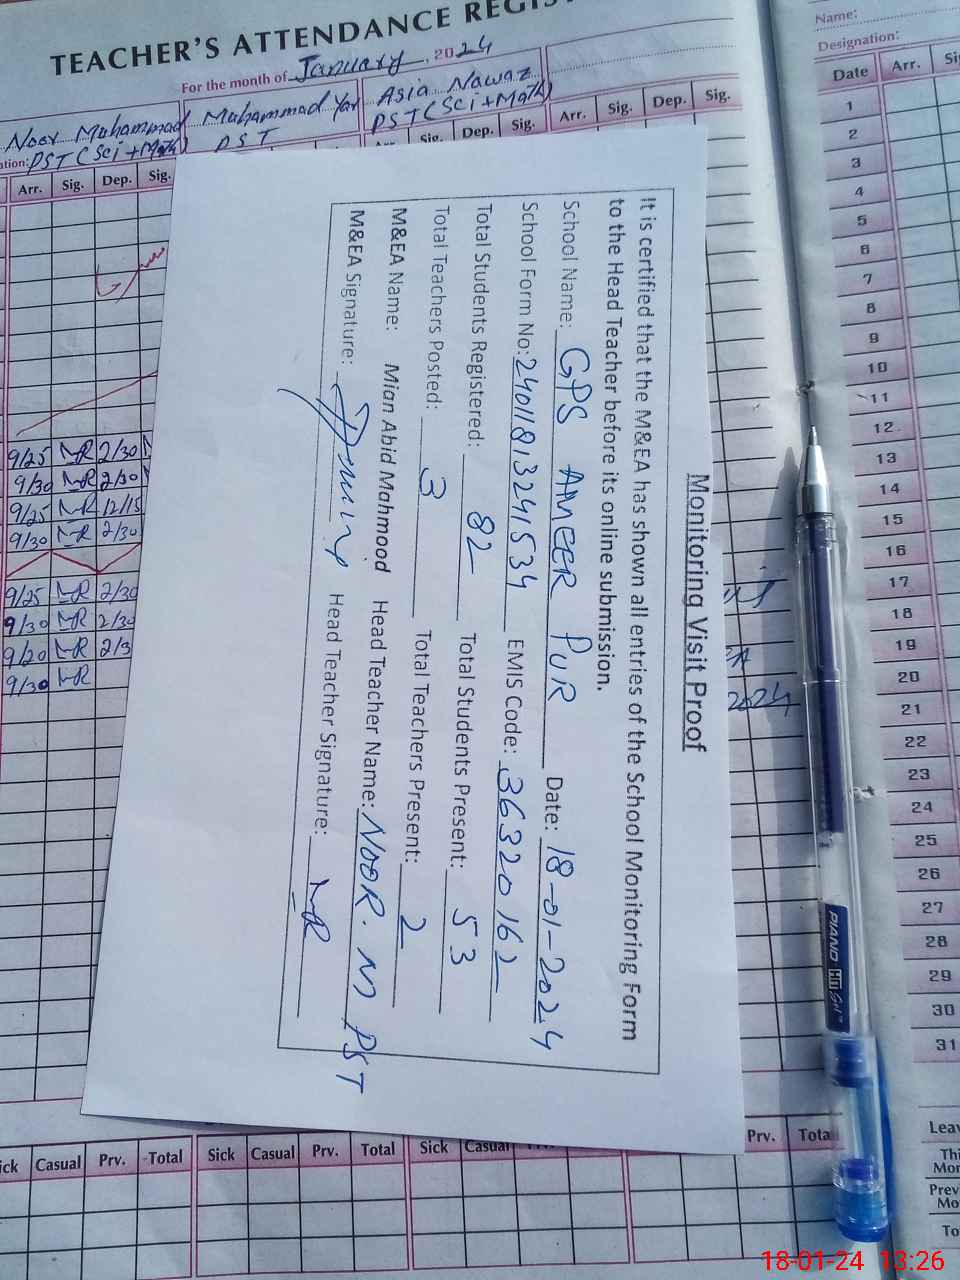 TEACHER'S ATTENDANCE
For the month of January, 2024
Noor Muhammad Muhammad Yar Asia Nawaz
PST (Sci+Math) PST PST (Sci+Math)
Arr. Sig. Dep. Sig.
Sig. Dep. Sig. Arr. Sig. Dep. Sig.
9/25 MR 2/30
9/30 MR 2/30
9/25 MR 12/15
9/30 MR 2/30
9/25 MR 2/30
9/30 MR 2/30
9/20 MR 2/3
9/30 MR
Monitoring Visit Proof
It is certified that the M&EA has shown all entries of the School Monitoring Form
to the Head Teacher before its online submission.
School Name: GPS AMEER PUR Date: 18-01-2024
School Form No: 24011813241534 EMIS Code: 36320162
Total Students Registered: 82 Total Students Present: 53
Total Teachers Posted: 3 Total Teachers Present: 2
M&EA Name: Mian Abid Mahmood Head Teacher Name: NOOR. M PST
M&EA Signature: Head Teacher Signature: MR
2024
Casual Prv. Total Sick Casual Prv. Total Sick Casual
Prv. Total
Name:
Designation:
Date Arr.
1
2
3
4
5
6
7
8
9
10
11
12
13
14
15
16
17
18
19
20
21
22
23
24
25
26
27
28
29
30
31
PIANO HI Gel
18-01-24 13:26